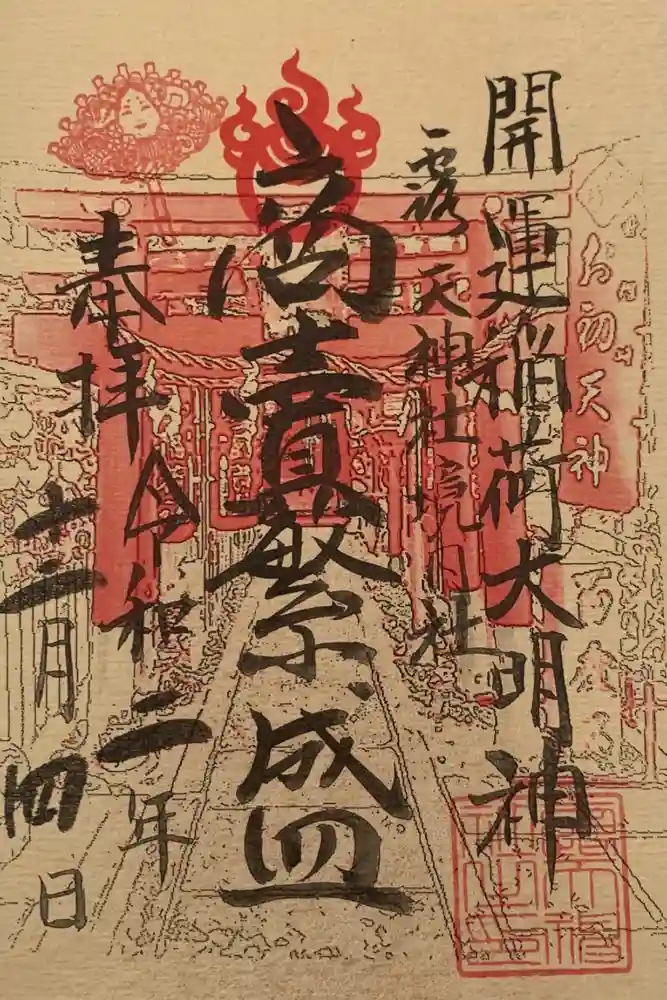 開運稲荷大明神
露天神社境内社
商売繁盛
奉拝
令和二年
十二月四日
お初天神